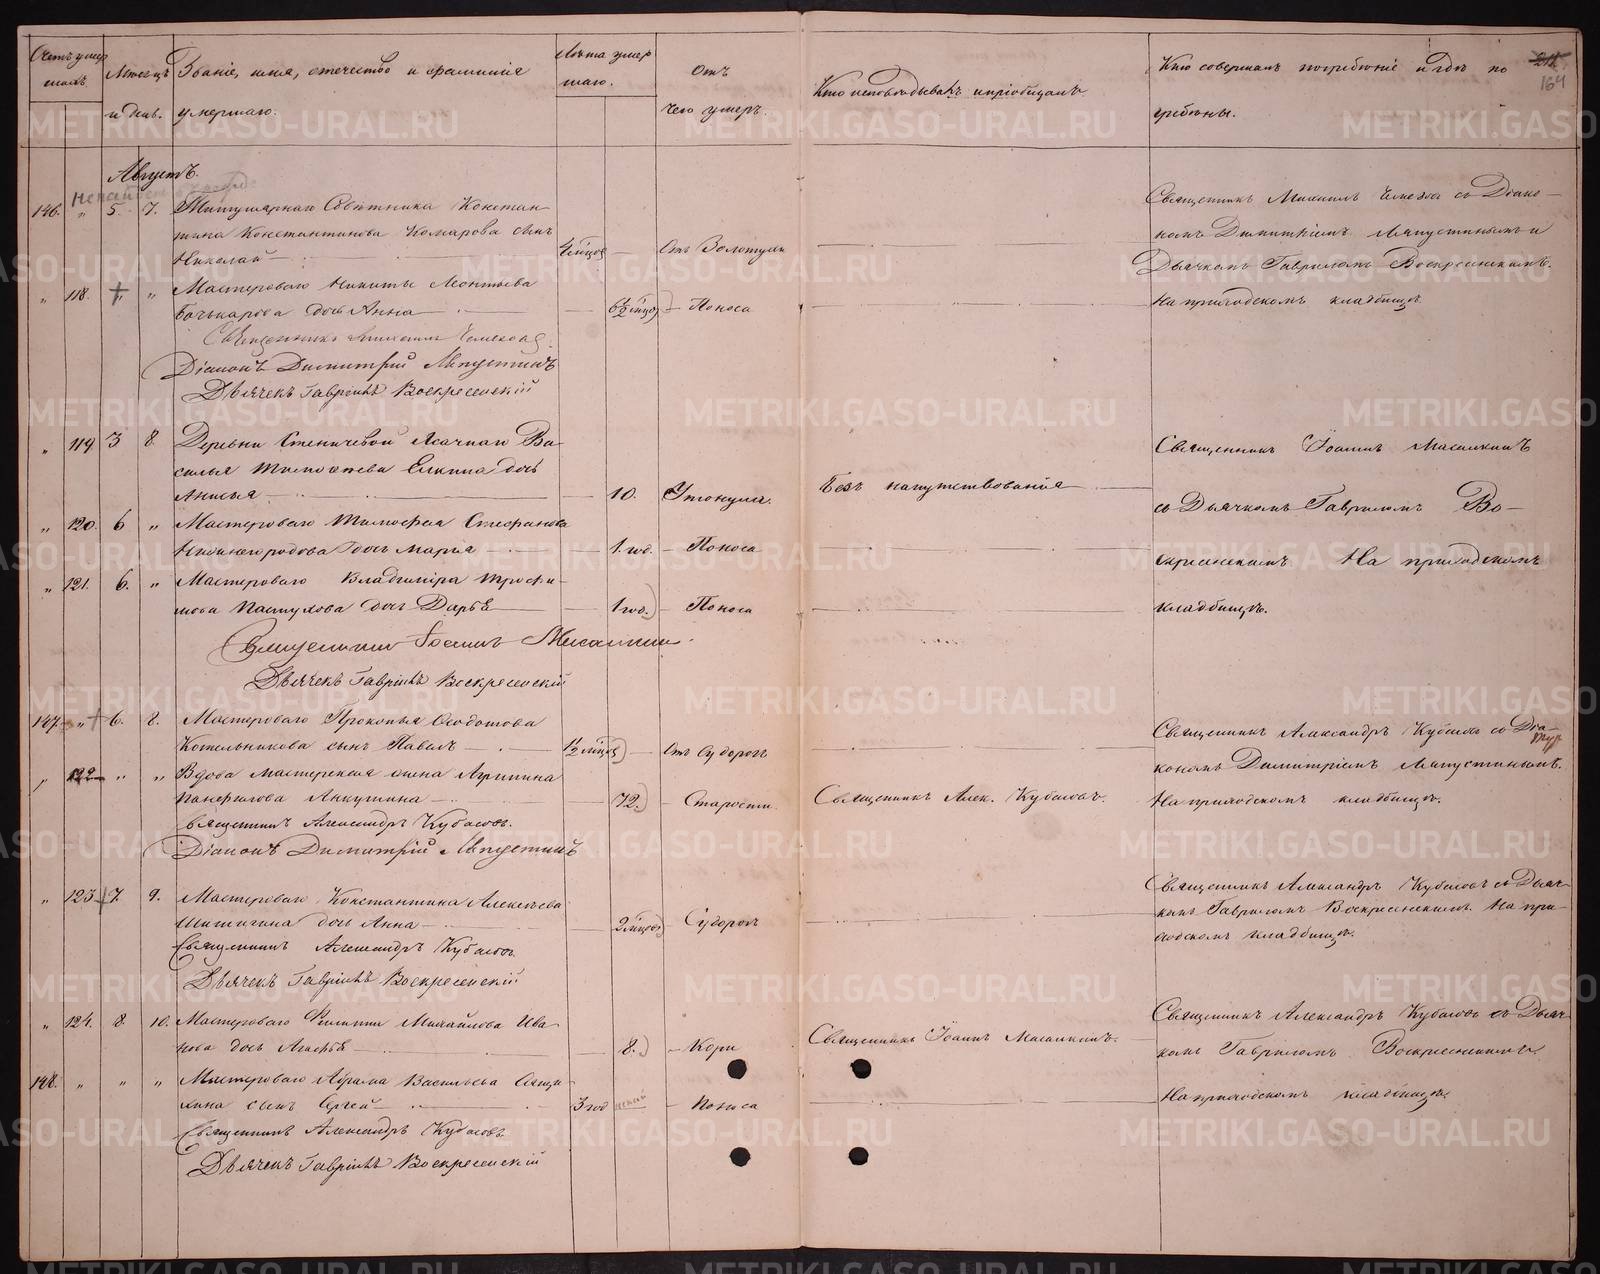 Счетъ умер
шихъ.
Мѣсяцъ
и день.
Званіе, имя, отечество и фамилія
умершаго.
Лѣта умер
шаго.
Отъ
чего умеръ.
Кто исповѣдывалъ и пріобщалъ.
Кто совершалъ погребеніе и гдѣ по
гребены.
164
Августъ.
146. " 5. 7. Титулярнаго Совѣтника Констан-
тина Константинова Комарова сынъ
Николай Отъ Золотухи
Священникъ Михаилъ со Діако-
номъ Димитріемъ Ляпустинымъ и
Дьячкомъ Гавріиломъ Воскресенскимъ.
На приходскомъ кладбищѣ.
" 118. " " Мастероваго Никиты Леонтьева
дочь Анна Поноса
Священникъ Михаилъ
Діаконъ Димитрій Ляпустинъ
Дьячекъ Гавріилъ Воскресенскій
" 119. 3 8. Деревни Ясачнаго Ва-
силья Тимофеева Елкина дочь
Анисья 10. Утонула. Безъ напутствованія
Священникъ Іоаннъ
со Дьячкомъ Гавріиломъ Во-
скресенскимъ На приходскомъ
кладбищѣ.
" 120. 6 " Мастероваго Тимофея Стефанова
Нижегородова дочь Марья 1. год. Поноса
" 121. 6. " Мастероваго Владиміра Трофи-
мова Пастухова дочь Дарья 1 год. Поноса
Священникъ Іоаннъ
Дьячекъ Гавріилъ Воскресенскій
147. " 6. 8. Мастероваго Прокопья Ѳеодотова
Котельникова сынъ Павелъ Отъ Судорогъ
Священникъ Александръ Кубасовъ со Діа-
кономъ Димитріемъ Ляпустинымъ.
На приходскомъ кладбищѣ.
" 122 " " Вдова мастерская жена Агрипина
Панфилова 72. Старости Священникъ Алек. Кубасовъ.
Священникъ Александръ Кубасовъ.
Діаконъ Димитрій Ляпустинъ
" 123 7. 9. Мастероваго Константина Алексѣева
Шишигина дочь Анна Судорогъ
Священникъ Александръ Кубасовъ со Дьяч-
комъ Гавріиломъ Воскресенскимъ. На при-
ходскомъ кладбищѣ.
Священникъ Александръ Кубасовъ.
Дьячекъ Гавріилъ Воскресенскій
" 124. 8. 10. Мастероваго Филиппа Михайлова Ива-
нова дочь 8. Кори Священникъ Іоаннъ
Священникъ Александръ Кубасовъ съ Дьяч-
комъ Гавріиломъ Воскресенскимъ.
На приходскомъ кладбищѣ.
148. " " " Мастероваго Абрама Васильева
сынъ Сергей 3 год Поноса
Священникъ Александръ Кубасовъ.
Дьячекъ Гавріилъ Воскресенскій
METRIKI.GASO-URAL.RU